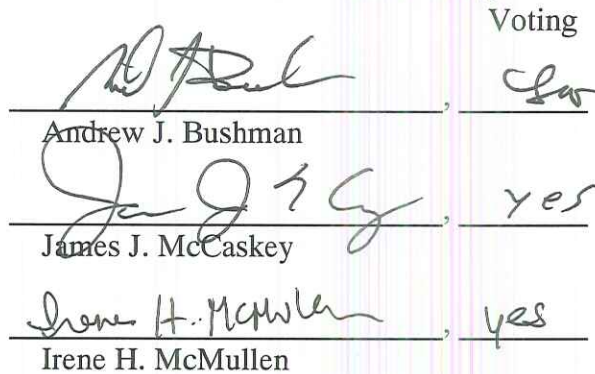 Voting
Yes
Andrew J. Bushman
James J. McCaskey yes
James J. McCaskey
Irene H. McMullen, yes
Irene H. McMullen